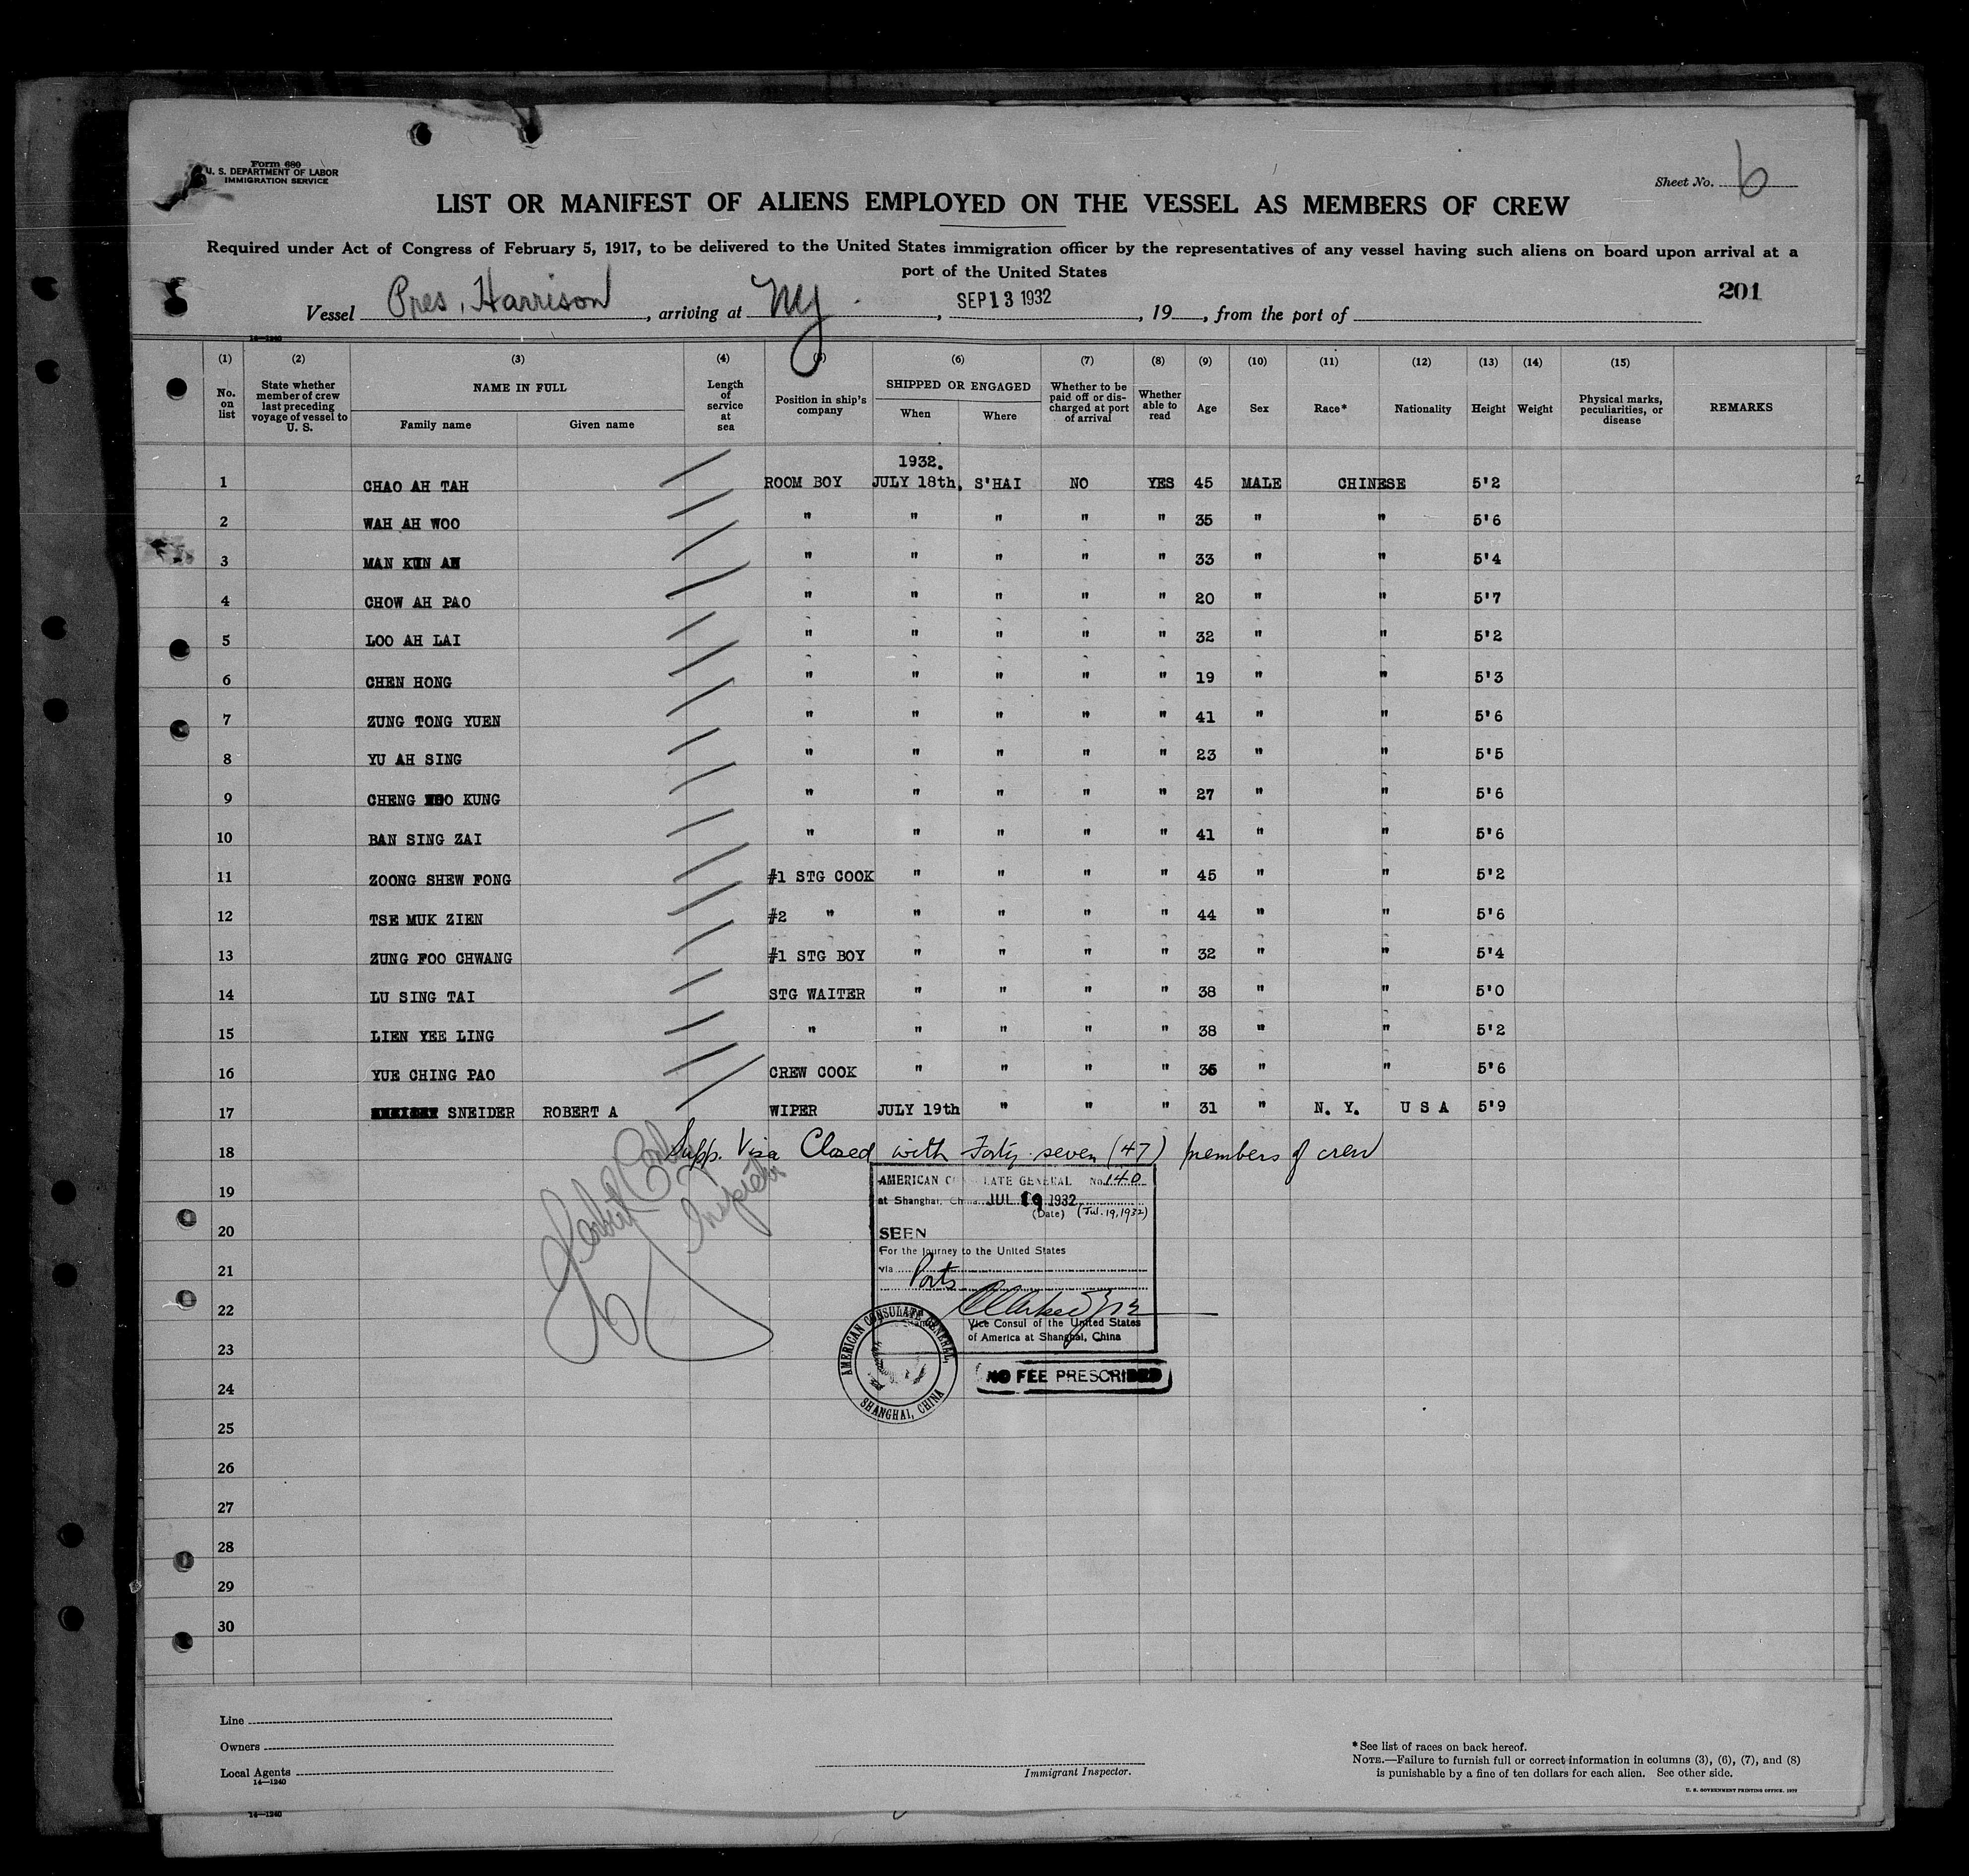 Form 680
U. S. DEPARTMENT OF LABOR
IMMIGRATION SERVICE
Sheet No. 6
LIST OR MANIFEST OF ALIENS EMPLOYED ON THE VESSEL AS MEMBERS OF CREW
Required under Act of Congress of February 5, 1917, to be delivered to the United States immigration officer by the representatives of any vessel having such aliens on board upon arrival at a
port of the United States
201
Vessel Pres. Harrison, arriving at NY., SEP 13 1932, 19__, from the port of
14—1240
(1) (2) (3) (4) (5) (6) (7) (8) (9) (10) (11) (12) (13) (14) (15)
No. on list State whether member of crew last preceding voyage of vessel to U. S. NAME IN FULL Family name Given name Length of service at sea Position in ship's company SHIPPED OR ENGAGED When Where Whether to be paid off or discharged at port of arrival Whether able to read Age Sex Race* Nationality Height Weight Physical marks, peculiarities, or disease REMARKS
1932.
1 CHAO AH TAH ROOM BOY JULY 18th, S'HAI NO YES 45 MALE CHINESE 5'2
2 WAH AH WOO " " " " " 35 " " 5'6
3 MAN KUN AH " " " " " 33 " " 5'4
4 CHOW AH PAO " " " " " 20 " " 5'7
5 LOO AH LAI " " " " " 32 " " 5'2
6 CHEN HONG " " " " " 19 " " 5'3
7 ZUNG TONG YUEN " " " " " 41 " " 5'6
8 YU AH SING " " " " " 23 " " 5'5
9 CHENG KUNG " " " " " 27 " " 5'6
10 BAN SING ZAI " " " " " 41 " " 5'6
11 ZOONG SHEW FONG #1 STG COOK " " " " 45 " " 5'2
12 TSE MUK ZIEN #2 " " " " " 44 " " 5'6
13 ZUNG FOO CHWANG #1 STG BOY " " " " 32 " " 5'4
14 LU SING TAI STG WAITER " " " " 38 " " 5'0
15 LIEN YEE LING " " " " " 38 " " 5'2
16 YUE CHING PAO CREW COOK " " " " 36 " " 5'6
17 SNEIDER ROBERT A WIPER JULY 19th " " " 31 " N. Y. U S A 5'9
18 Supp. Visa Closed with Forty-seven (47) members of crew
19 AMERICAN CONSULATE GENERAL No. 140
at Shanghai, China JUL 19 1932
(Date) (Jul. 19, 1932)
Inspector
20 SEEN
For the journey to the United States
21 via Ports
22
Vice Consul of the United States
of America at Shanghai, China
23
AMERICAN CONSULATE GENERAL, SHANGHAI, CHINA
NO FEE PRESCRIBED
24
25
26
27
28
29
30
Line
Owners
Local Agents
14—1240
Immigrant Inspector.
*See list of races on back hereof.
NOTE.—Failure to furnish full or correct information in columns (3), (6), (7), and (8)
is punishable by a fine of ten dollars for each alien. See other side.
14—1240